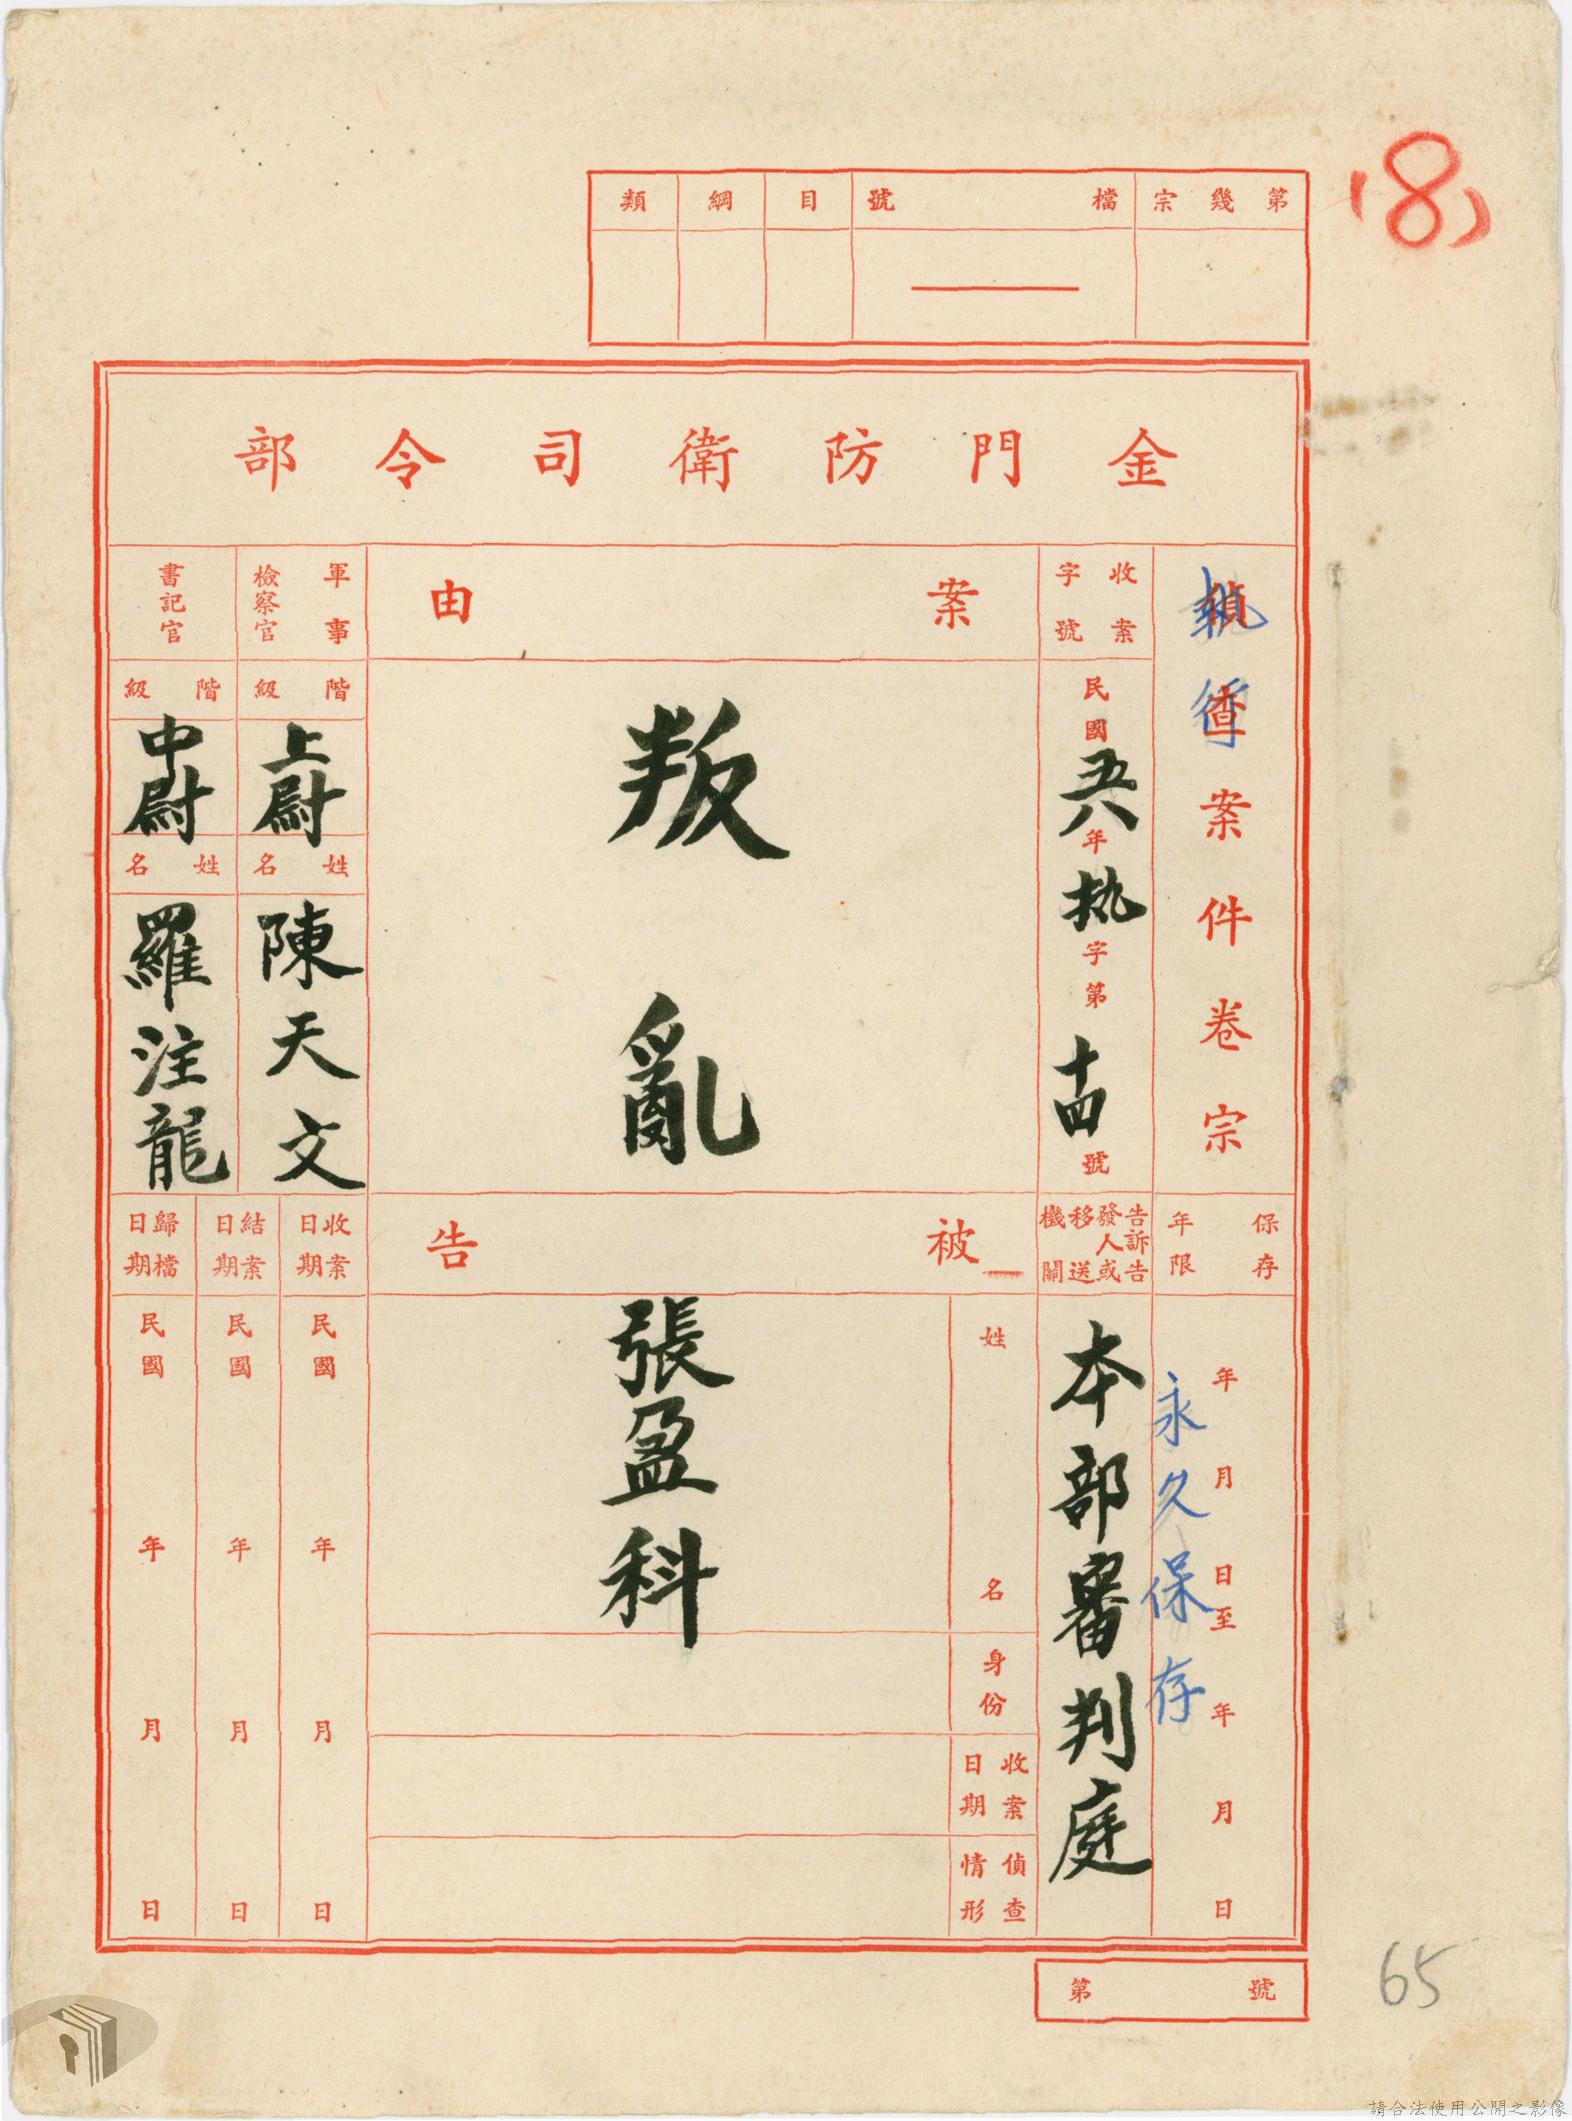 (8)
第幾宗
檔號
目
綱
類
金門防衛司令部
執行案件卷宗
保存年限
年月日至年月日
永久保存
收案字號
民國五八年執字第十四號
告訴告發人或移送機關
本部審判庭
案由
叛亂
被告
姓名
張盈科
身份
收案日期
偵查情形
軍事檢察官
階級
上尉
姓名
陳天文
書記官
階級
中尉
姓名
羅注龍
收案日期
民國年月日
結案日期
民國年月日
歸檔日期
民國年月日
第號
65
請合法使用公開之影像